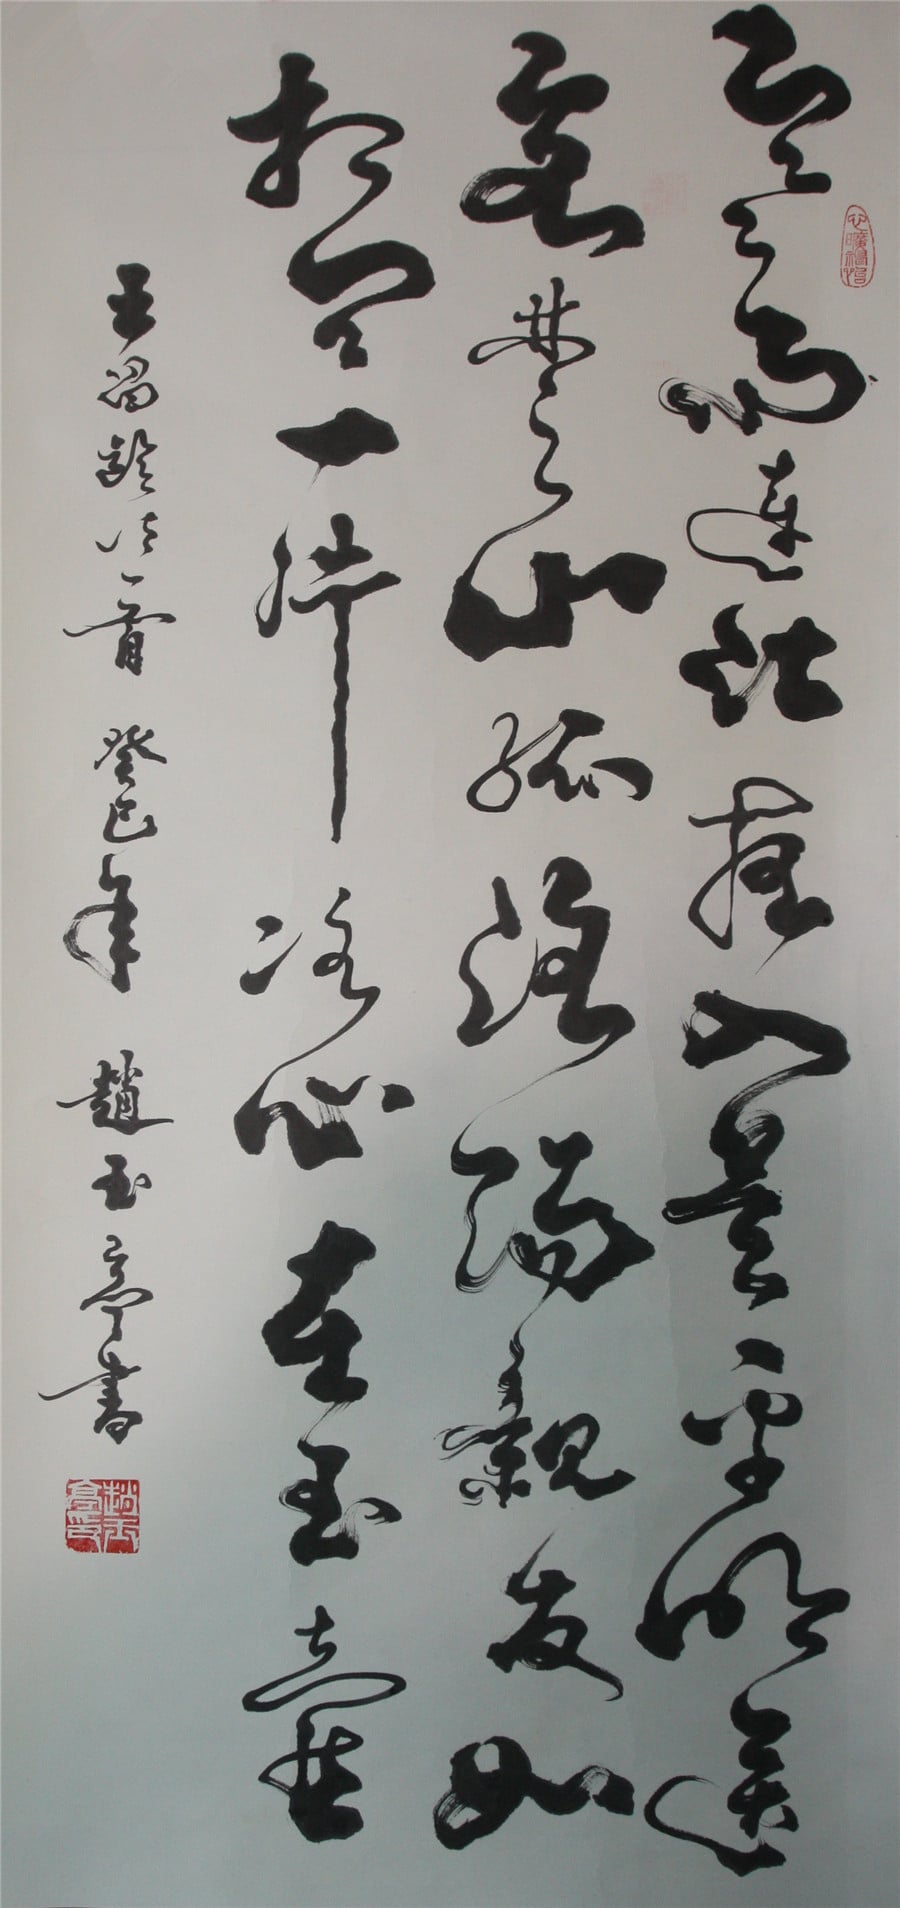 寒雨連江夜入吳平明送
客楚山孤洛陽親友如
相問一片冰心在玉壺
王昌齡詩一首 癸巳年 趙玉亭書
心曠神怡
趙玉亭印